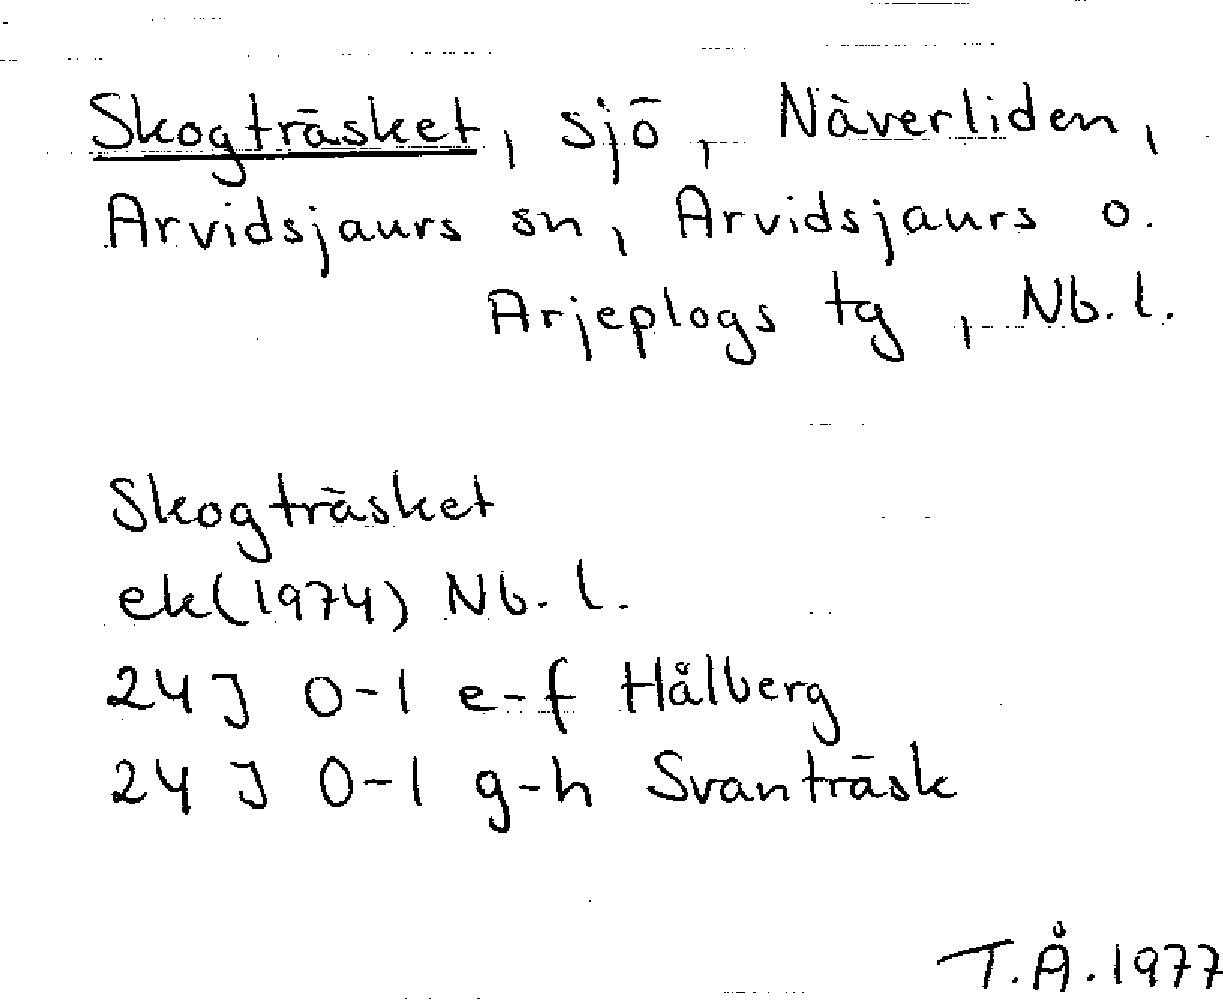 Skogträsket, sjö, Näverliden,
Arvidsjaurs sn, Arvidsjaurs o.
Arjeplogs tg, Nb. l.
Skogträsket
ek(1974) Nb. l.
24 J 0-1 e-f Hålberg
24 J 0-1 g-h Svanträsk
T.Å. 1977